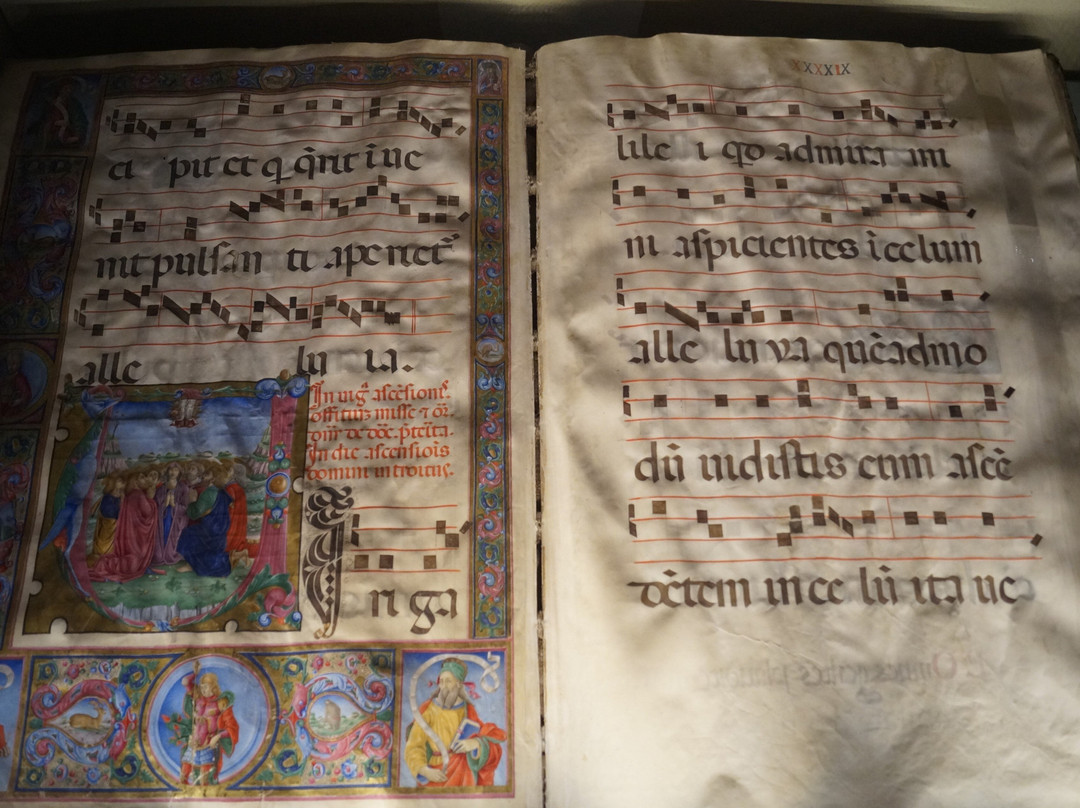 ci pit et q q̄rit ī ue
nit pulsan ti aperiet᷑
alle lu ia.
In uig᷑ ascēsionis.
offitiuȝ misse ⁊ oīa
In die ascensiois
domini introitus.
V i ri ga
XXXXIX
lile i qd admira mi
ni aspicientes ī celum
alle lu ya quēadmo
dū uidistis eum ascē
dētem in ce lū ita ue